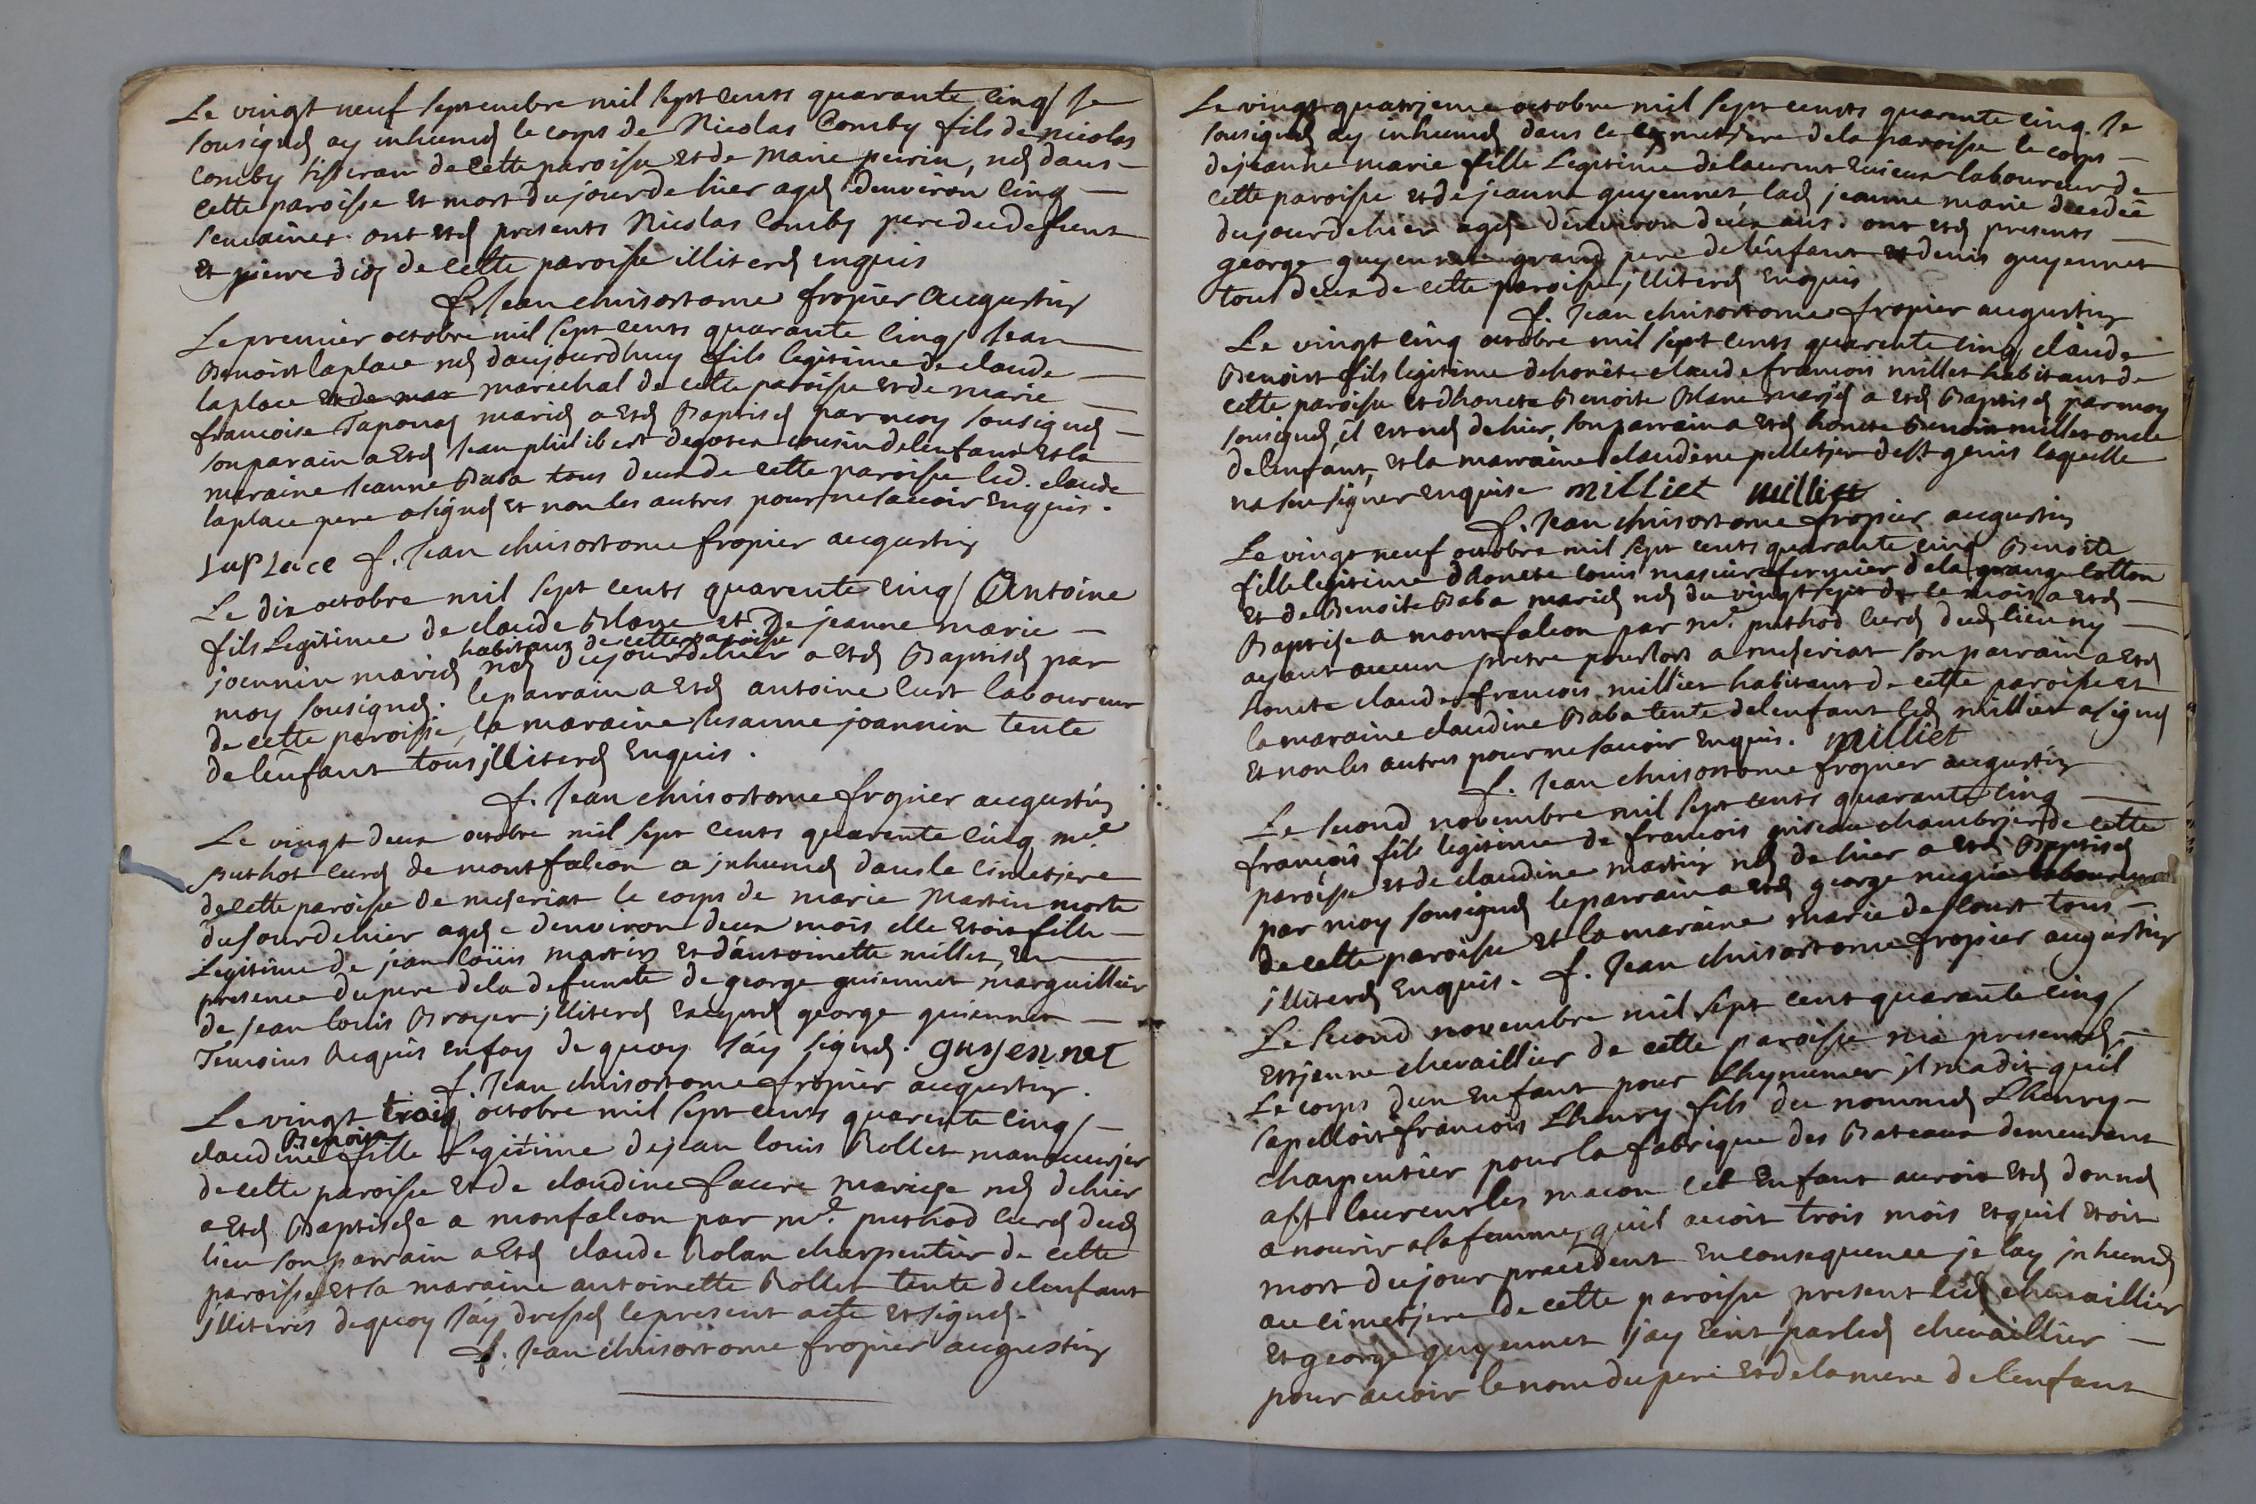 Le vingt neuf septembre mil sept cents quarante cinq / Je
sousigné ay inhumé le corps de Nicolas Comby fils de nicolas
comby tisseran de cette paroisse et de Marie perrin, né dans
cette paroisse et mort du jour de hier agé denviron cinq
semaines. ont eté presents Nicolas Comby pere du defunt
et pierre dié de cette paroisse illiteré enquis
f. Jean chrisostome fropier augustin
Le premier octobre mil sept cents quarante cinq / Jean
Benoist laplace né daujourdhuy fils legitime de claude
laplace et de mar marechal de cette paroisse et de marie
francoise Taponas mariés a eté Baptisé par moy sousigné
son parain a eté Jean philibert degoter cousin delenfant et la
maraine Jeanne Baba tous deux de cette paroisse led. claude
laplace pere a signé et non les autres pour ne savoir enquis.
LaPLace f. Jean chrisostome fropier augustin
Le dix octobre mil sept cents quarente cinq / Antoine
fils Legitime de claude Blanc et De jeanne marie
habitans de cette paroisse
joannin mariés né du jour de hier a eté Baptisé par
moy sousigné. le parrain a eté antoine curt laboureur
de cette paroisse, la maraine susanne joannin tente
de lenfant tous jlliteré Enquis.
f. Jean chrisostome fropier augustin
Le vingt deux octobre mil sept cents quarente cinq mre
puthot curé de montfalcon a jnhumé dans le cimetjere
de cette paroisse de miseriat le corps de marie Martin morte
du Jour de hier agée denviron deux mois elle etoit fille
Legitime de jean loüis martin et dantoinette millet, en
presence du pere de la defunte de george guiennet marguillier
de Jean louis Broyer jlliteré excepté george guiennet
Temoins Requis en foy de quoy Jay signé. guyennet
f. Jean chrisostome fropier augustin.
Le vingt trois octobre mil sept cents quarente cinq /
Benoite
claudine fille Legitime de jean louis Rollet manouvrjer
de cette paroisse et de claudine favre mariés né dehier
a eté Baptisée a monfalcon par mre. puthod curé dud
lieu son parrain a eté claude Rolan charpentier de cette
paroisse et sa maraine antoinette Rollet tente delenfant
jlliterés de quoy Jay dressé le present acte et signé.
f. Jean chrisostome fropier augustin
Le vingt quatrieme octobre mil sept cents quarente cinq. Je
sousigné ay inhumé dans le cymetjere de la paroisse le corps
de jeanne marie fille Legitime de laurent laboureur de
cette paroisse et de jeanne guyennet, lad jeanne marie decedée
du jour de hier agée denviron deux ans. ont eté presents
george guyennet grand pere de lenfant et denis guyennet
tous deux de cette paroisse jlliteré Enquis
f. Jean chrisostome fropier augustin
Le vingt cinq octobre mil sept cents quarente cinq claude
Benoist fils legitime de honète claude francois millet habitant de
cette paroisse et dhonete Benoite Blanc marjés a eté Baptisé par moy
sousigné il est né dehier, son parrain a eté honete Benoit millet oncle
de lenfant, et la marraine claudine pelletjer de st genis laquelle
na seu signer enquise milliet milliet
f. Jean chrisostome fropier augustin
Le vingt neuf octobre mil sept cents quarante cinq Benoite
fille legitime dhonete louis fermier de la grange cotton
et de Benoite Baba mariés né du vingt sept de le mois a eté
Baptisée a montfalcon par mr. puthod curé dud lieu ny
ayant aucun pretre pour lors a miseriat son parrain a eté
honete claude francois millier habitant de cette paroisse et
la maraine claudine Baba tente de lenfant led millier a signé
et non les autres pour ne savoir enquis. milliet
f. Jean chrisostome fropier augustin
Le second novembre mil sept cents quarante cinq
françois fils legitime de francois griseau chambrjer de cette
paroisse et de claudine martin né de hier a eté Baptisé
par moy sousigné le parrain a eté george laboureur
de cette paroisse et la maraine marie tous
jlliteré Enquis. f. Jean chrisostome fropier augustin
Le second novembre mil sept cent quarante cinq /
etjenne chevaillier de cette paroisse ma presenté
Le corps dun enfant pour Lhynumer jl ma dit quil
sapelloit francois Lhenry fils du nommé Lhenry
charpentier pour la fabrique des Bateaux demeurant
a st laurent les macon cet enfant auroit eté donné
a nourir a la femme, quil avoit trois mois et quil etoit
mort du jour precedent en consequence je lay jnhumé
au cimetjere de cette paroisse present led chevaillier
et george guyennet jay ecrit par led chevaillier
pour avoir le nom du pere et de la mere de lenfant